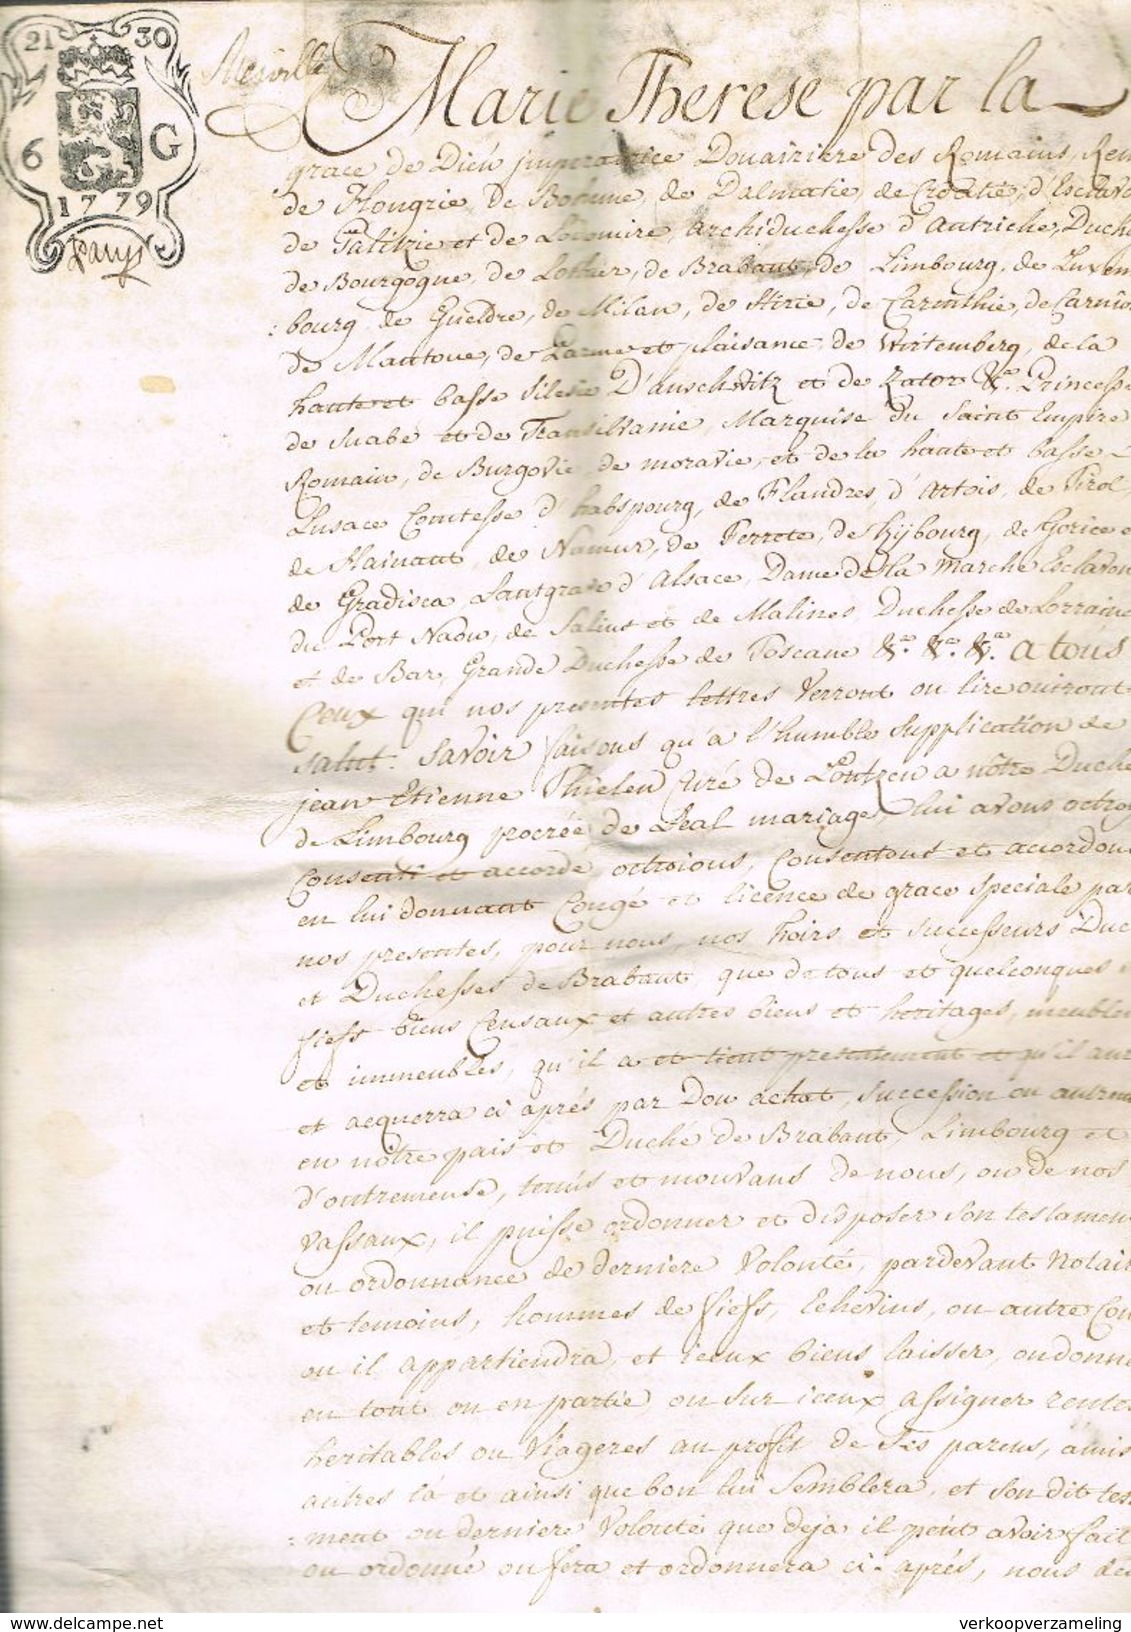 21 30
6 G
1779
Marie Therese par la
grace de Dieu imperatrice Douairiere des Romains, Rein
de Hongrie, de Boheme, de Dalmatie, de Croatie, d'Esclavo
de Gallizie et de Lodomire, Archiduchesse d'Autriche, Duche
de Bourgogne, de Lothier, de Brabant, de Limbourg, de Luxem
: bourg, de Gueldre, de Milan, de Stirie, de Carinthie, de Carnio
de Mantoue, de Parme et plaisance, de Wirtemberg, de la
haute et basse Silesie D'auschwitz et de Zator &a. Princesse
de Suabe et de Transilvanie, Marquise du Saint Empire
Romain, de Burgovie, de moravie, et de la haute et basse
Lusace Comtesse d'habspourg, de Flandres, d'Artois, de Tirol
de Hainaut, de Namur, de Ferrete, de Kybourg, de Gorice e
de Gradisca, Lantgrave d'Alsace, Dame de la Marche Esclavon
du Port Naon, de Salins et de Malines, Duchesse de Lorraine
et de Bar, Grande Duchesse de Toscane &a. &a. &a. a tous
Ceux qui nos presentes lettres Verront ou lire ouiront
salut: Savoir faisons qu'a l'humble supplication de
jean Etienne Thielen Curé de Lontzen a nôtre Duché
de Limbourg procreé de Leal mariage, lui avons octroy
Consenti et accordé, octroions, Consentons et accordons
en lui donnant Congé et licence de grace speciale par
nos presentes, pour nous, nos hoirs et successeurs Duc
et Duchesses de Brabant, que de tous et quelconques
fiefs biens Censaux et autres biens et heritages, meubles
et immeubles, qu'il a et tient presentement et qu'il aur
et acquerra ci aprés par Don achat, succession ou autrem
en nôtre pais et Duché de Brabant, Limbourg et
d'outremeuse, tenus et mouvans de nous, ou de nos
vassaux, il puisse ordonner et disposer son testament
ou ordonnance de derniere Volonté, pardevant Notair
et temoins, hommes de fiefs, Echevins, ou autre Cou
ou il appartiendra, et iceux biens laisser, ou donne
en tout ou en partie, ou sur iceux assigner rentes
heritables ou Viageres au profit de Ses parens, amis
autres là et ainsi que bon lui Semblera, et son dit tes
: ment ou derniere Volonté que deja il peut avoir fait
ou ordonné ou fera et ordonnera ci-aprés, nous de
verkoopverzameling